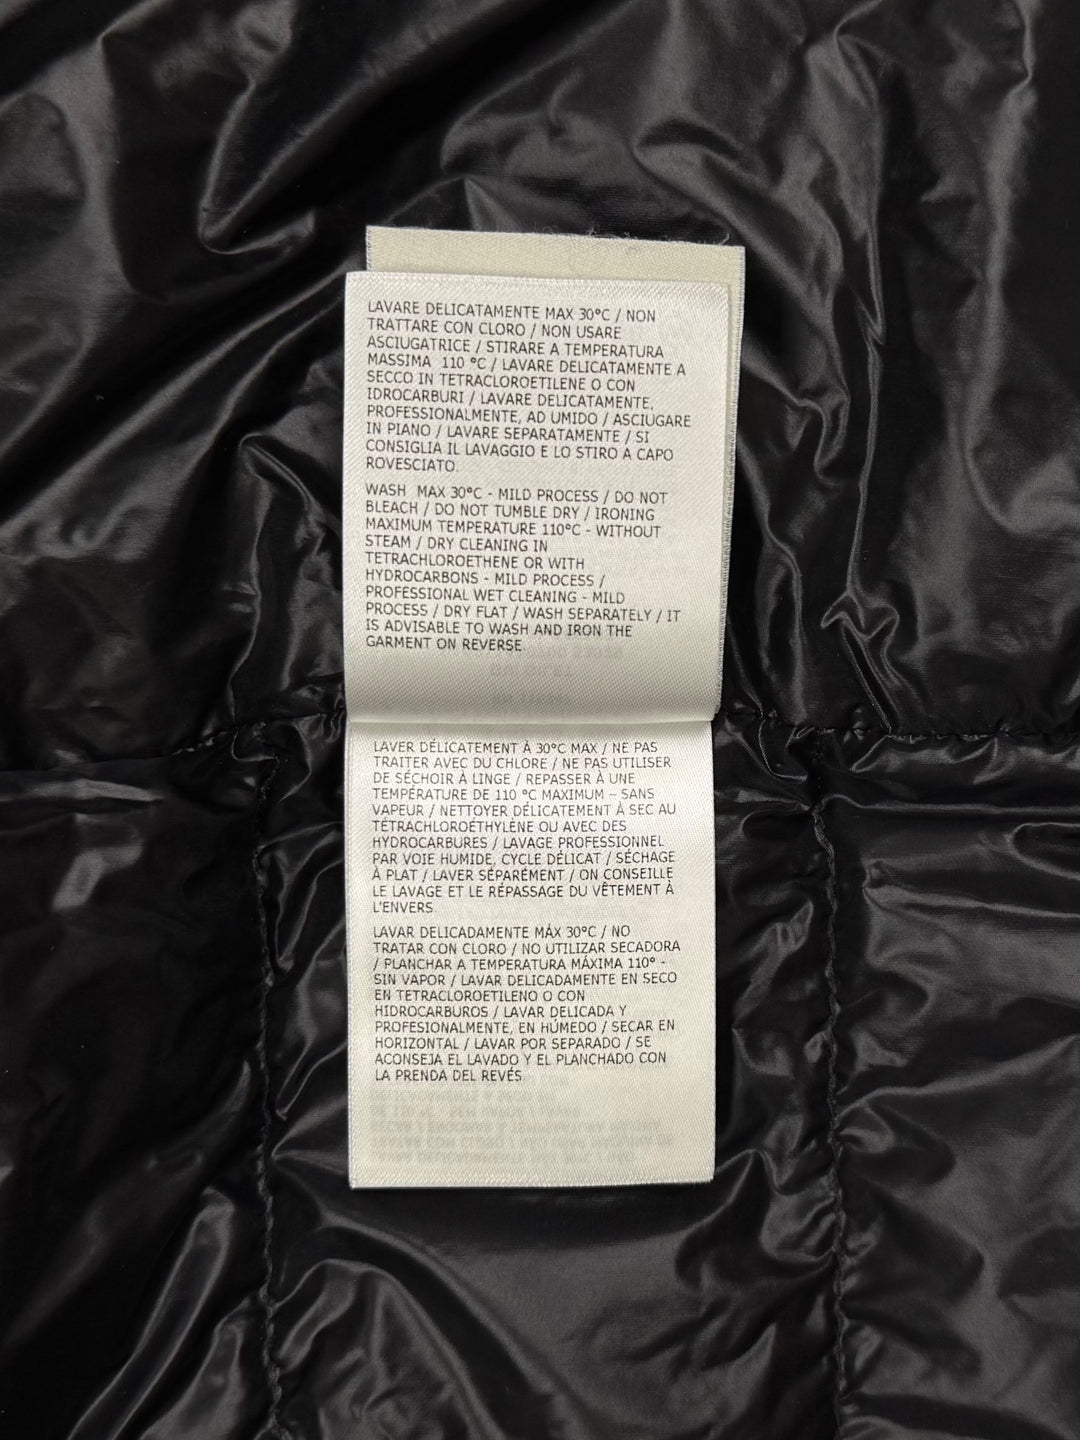 LAVARE DELICATAMENTE MAX 30°C / NON
TRATTARE CON CLORO / NON USARE
ASCIUGATRICE / STIRARE A TEMPERATURA
MASSIMA 110 °C / LAVARE DELICATAMENTE A
SECCO IN TETRACLOROETILENE O CON
IDROCARBURI / LAVARE DELICATAMENTE,
PROFESSIONALMENTE, AD UMIDO / ASCIUGARE
IN PIANO / LAVARE SEPARATAMENTE / SI
CONSIGLIA IL LAVAGGIO E LO STIRO A CAPO
ROVESCIATO.
WASH MAX 30°C - MILD PROCESS / DO NOT
BLEACH / DO NOT TUMBLE DRY / IRONING
MAXIMUM TEMPERATURE 110°C - WITHOUT
STEAM / DRY CLEANING IN
TETRACHLOROETHENE OR WITH
HYDROCARBONS - MILD PROCESS /
PROFESSIONAL WET CLEANING - MILD
PROCESS / DRY FLAT / WASH SEPARATELY / IT
IS ADVISABLE TO WASH AND IRON THE
GARMENT ON REVERSE.
LAVER DÉLICATEMENT À 30°C MAX / NE PAS
TRAITER AVEC DU CHLORE / NE PAS UTILISER
DE SÉCHOIR À LINGE / REPASSER À UNE
TEMPÉRATURE DE 110 °C MAXIMUM – SANS
VAPEUR / NETTOYER DÉLICATEMENT À SEC AU
TÉTRACHLOROÉTHYLÈNE OU AVEC DES
HYDROCARBURES / LAVAGE PROFESSIONNEL
PAR VOIE HUMIDE, CYCLE DÉLICAT / SÉCHAGE
À PLAT / LAVER SÉPARÉMENT / ON CONSEILLE
LE LAVAGE ET LE RÉPASSAGE DU VÊTEMENT À
L'ENVERS.
LAVAR DELICADAMENTE MÁX 30°C / NO
TRATAR CON CLORO / NO UTILIZAR SECADORA
/ PLANCHAR A TEMPERATURA MÁXIMA 110° -
SIN VAPOR / LAVAR DELICADAMENTE EN SECO
EN TETRACLOROETILENO O CON
HIDROCARBUROS / LAVAR DELICADA Y
PROFESIONALMENTE, EN HÚMEDO / SECAR EN
HORIZONTAL / LAVAR POR SEPARADO / SE
ACONSEJA EL LAVADO Y EL PLANCHADO CON
LA PRENDA DEL REVÉS